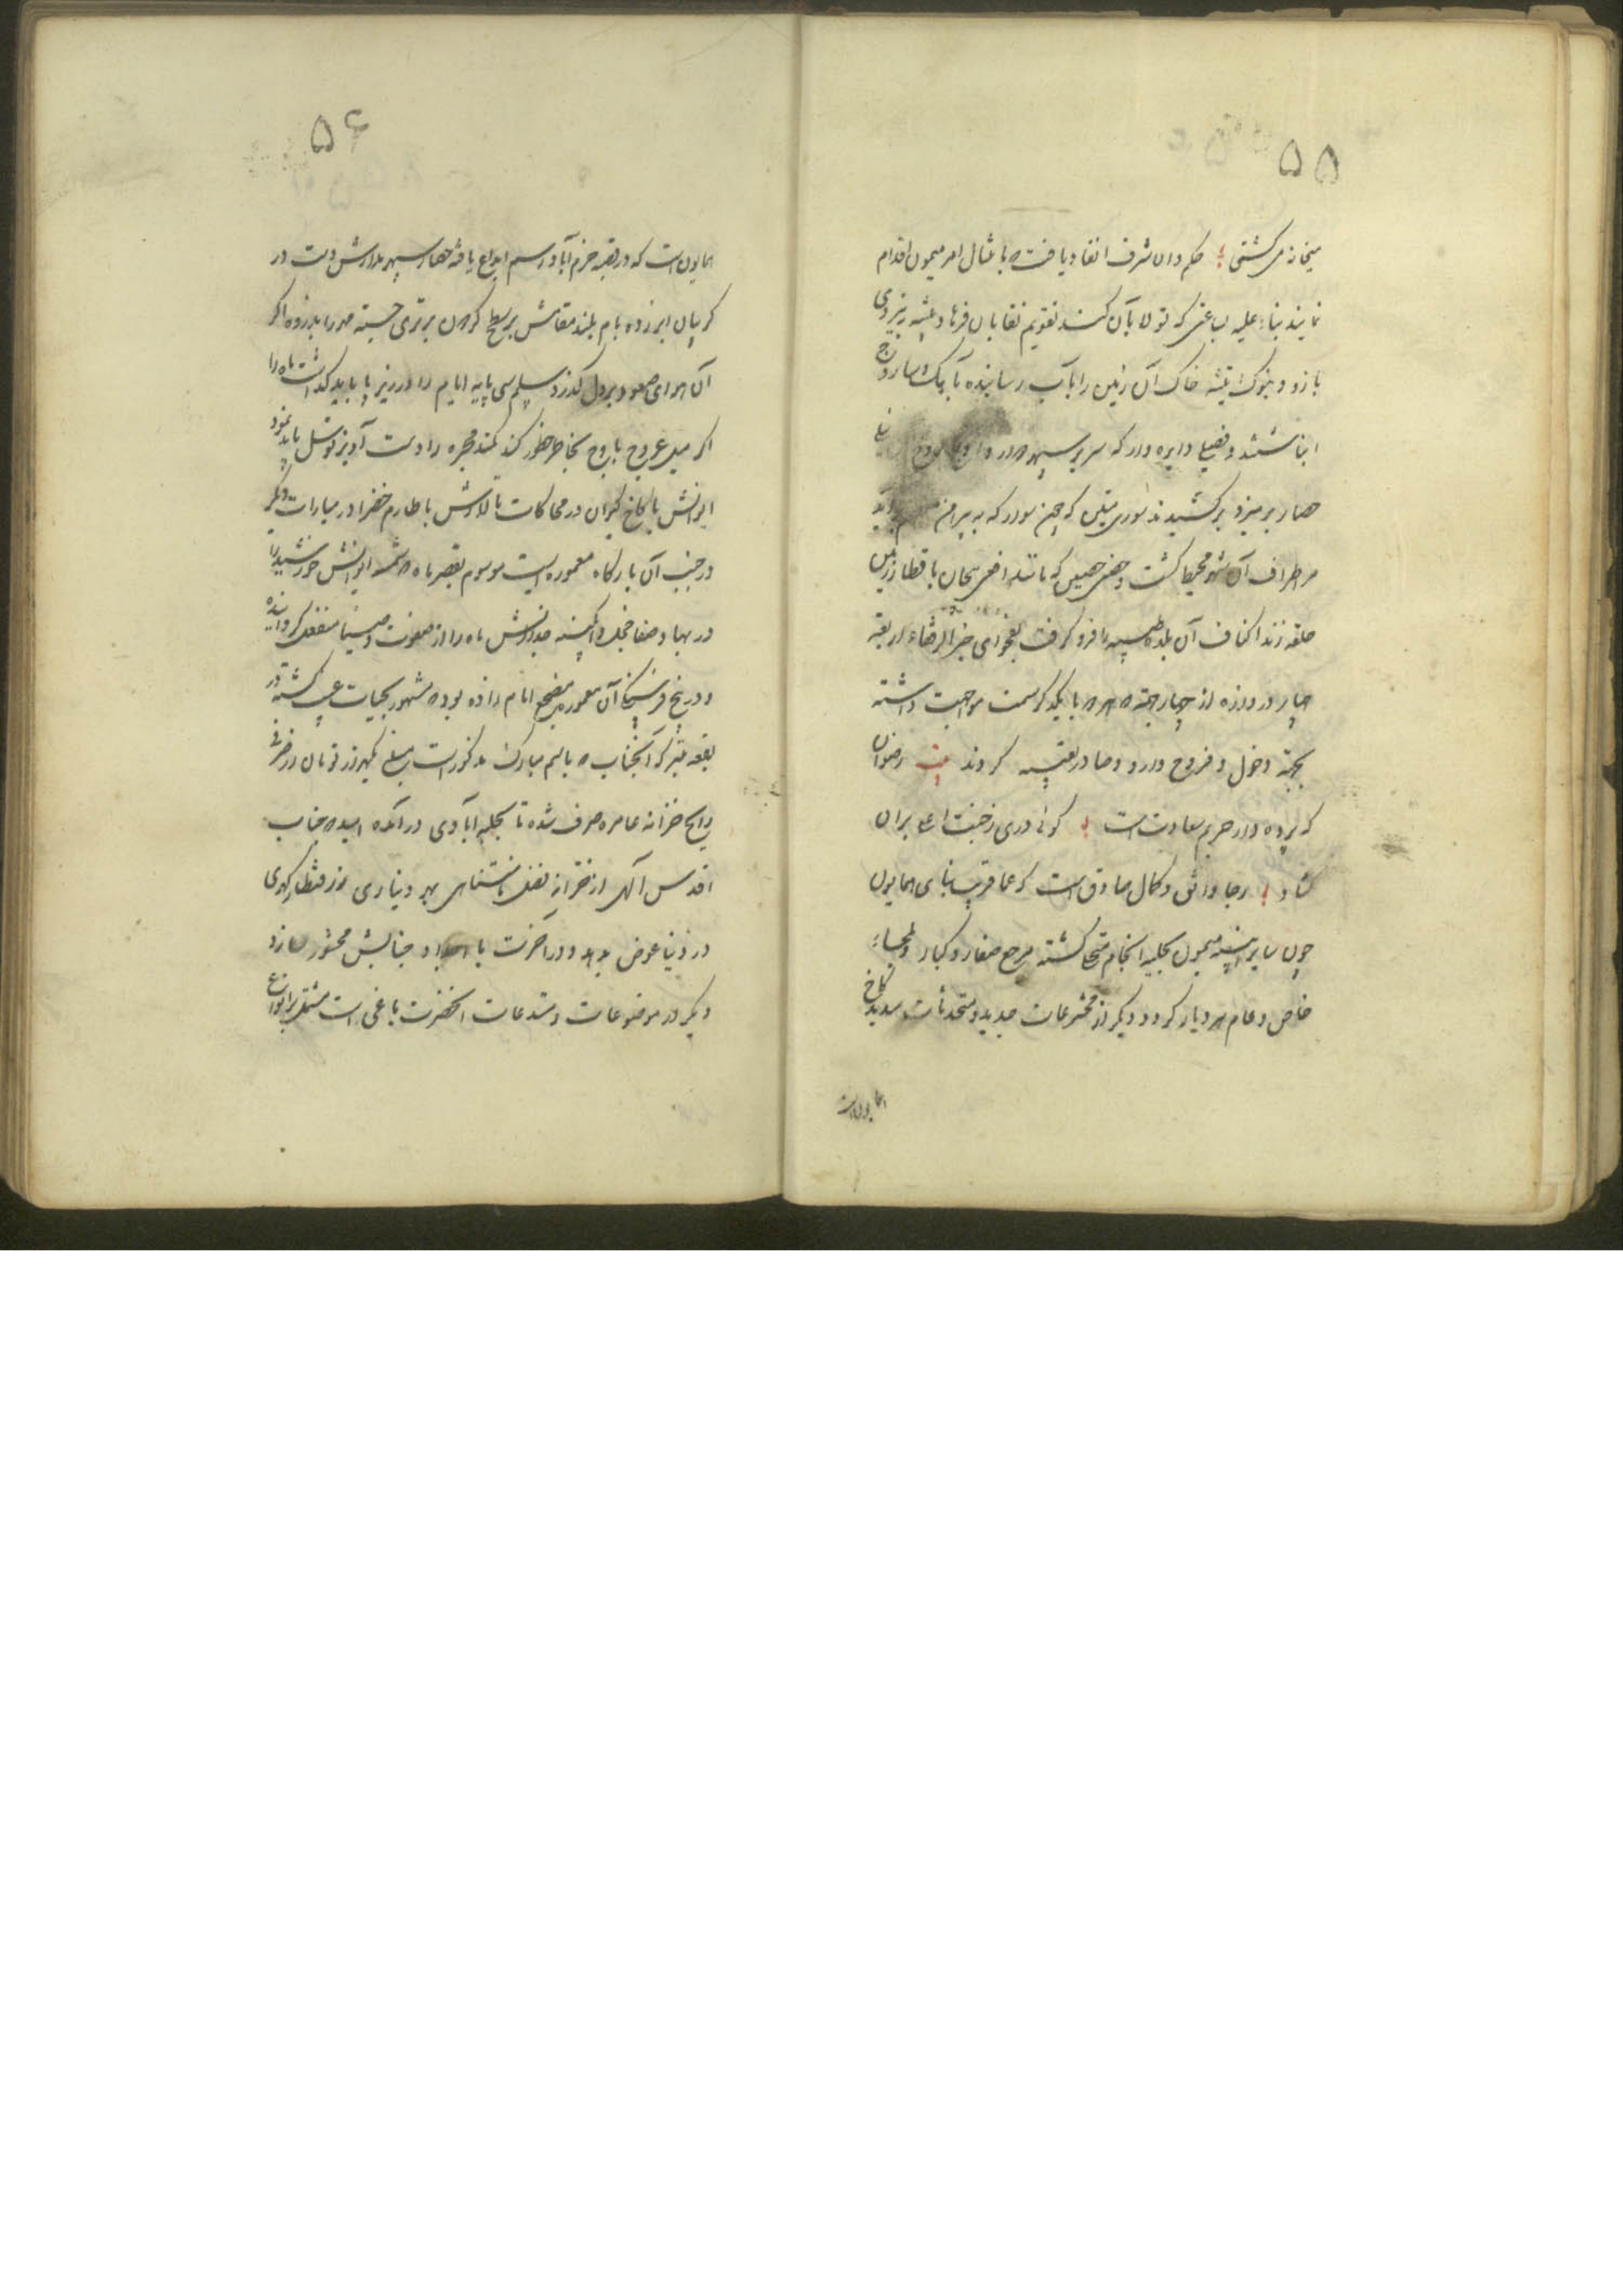 ۵۵
میخانه می کشتی حکم در آن شرف انفاد یافت که بامتثال امر میمون اقدام
نمایند بناء علیه که تقویم نقابان فرهاد پیشه به نیروی
بازو و بنوک تیشه خاک آن زمین را بآب رسانیده بآهک و ساروج
انباشتند و فصیلی دایره وار که سپهر در
حصار بر کشیدند سوری متین که چون سور که به پیرامن
بر اطراف آن شهر محیط گشت و حصنی حصین که مانند افعی پیچان باقطار زمین
حلقه زند اکناف آن بلده طیبه را فرو گرفت بفحوای اربعة
چهار دروازه از چهار جهة که هر یک با یکدیگر سمت مواجهت داشته
بجهة دخول و خروج وارد و صادر تعبیه کردند بیت رضوان
که پرده دار حریم سعادت است گوئی دری ز جنت اعلی بر آن
گشاد رجا واثق و کمال صادق است که عما قریب بنای همایون
چون سایر ابنیه میمون بحلیه انجام متحلی گشته مرجع صغار و کبار و ملجاء
خاص و عام هر دیار گردد و دیگر از مخترعات جدید و مستحدثات سدید کاخ
همایون است
۵۶
همایون است که در بقعه خرم آباد رسم ابداع یافته حصار سپهر مدارش دست در
گریبان ابر زده بام بلند مقامش بر سطح گردون برتری جسته مهر را بذروه اگر
آن هوای صعود بر دل گذرد سلم سی پایه ایام را در زیر پا باید گذاشت ماه را
اگر میل عروج باوج بخاطر خطور کند کمند مجره را دست آویز توسل باید نمود
ایوانش با کاخ کیوان در محاکات تالارش با طارم خضرا در مبارات دیگر
در جنب آن بارگاه معموره ایست موسوم بقصر ماه که شمسه ایوانش خورشید را
در بها و صفا خجل و آئینه جدارش ماه را از صفوت و ضیا منفعل گردانیده
و در پنج فرسنگی آن معموره مضجع امام زاده بوده مشهور بحیات غیب گشته در
بقعه متبرکه آنجناب که باسم مبارک مذکور است مبلغ یکهزار تومان زر
رایج خزانه عامره صرف شده تا بحلیه آبادی در آمده امید که جناب
اقدس آلهی از خزانه فضل نامتناهی بهر دیناری هزار قنطار گهری
در دنیا عوض بدهد و در آخرت با اجداد جنابش محشور سازد
دیگر در موضوعات و مبتدعات آنحضرت باغی است مشتمل بر انواع